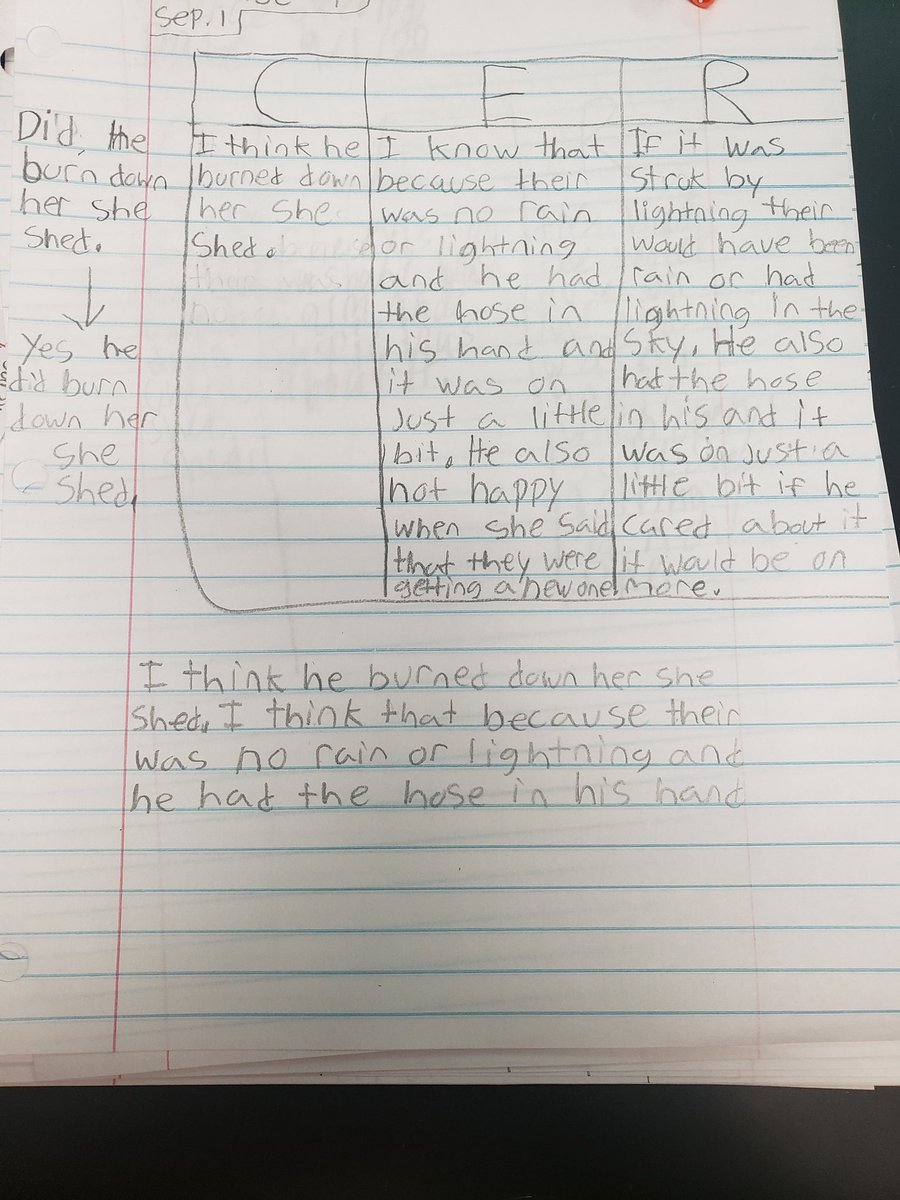 Sep. 1
C
E
R
Did the
burn down
her she
Shed.
Yes he
did burn
down her
she
Shed.
I think he
burned down
her she
Shed.
I know that
because their
was no rain
or lightning
and he had
the hose in
his hand and
it was on
Just a little
bit. He also
not happy
when she said
that they were
getting a new one
If it was
Struk by
lightning their
would have been
rain or had
lightning in the
Sky. He also
had the hose
in his and it
was on Just a
little bit if he
cared about it
it would be on
more.
I think he burned down her she
Shed. I think that because their
was no rain or lightning and
he had the hose in his hand